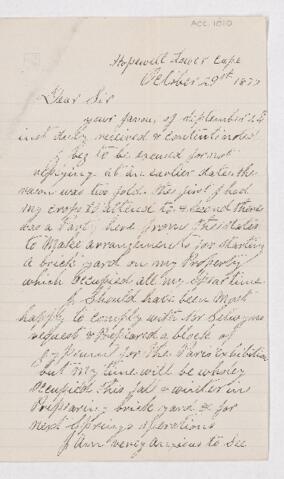 ACC. 1010
Hopewell Lower Cape
October 29st 1877
Dear Sir
your favour of September 26
inst duly recieved & contents noted
I beg to be excused for not
replying at an earlier date. the
reason was two fold. this first I had
my crop to attend to & second there
was a Party here from the states
to Make arrangements for starting
a brick yard on my Property
which Occupied all my Spair time
I Should have been Most
happy to comply with Mr Selwyns
request & Prepeared a block of
Gypsum for the Paris Exhibition
but my time will be wholey
Occupied this fall & winter in
Prepearing brick yard & for
next Springs operations
I Am verry anxious to See